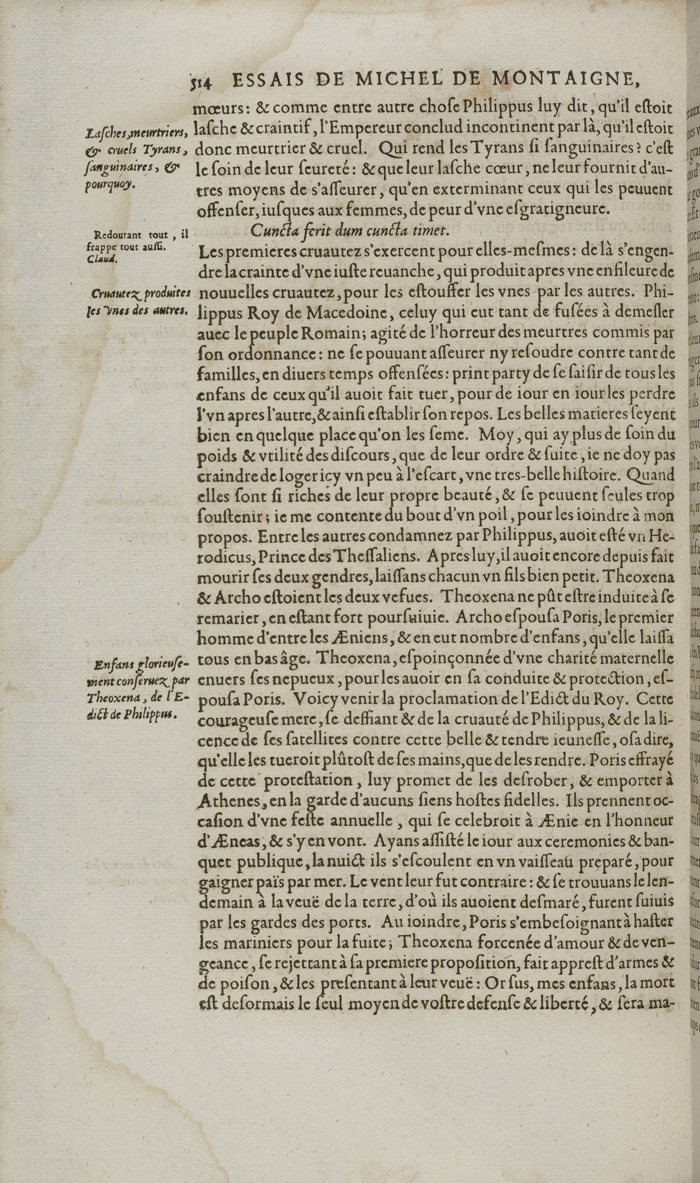 514 ESSAIS DE MICHEL DE MONTAIGNE,
mœurs: & comme entre autre choſe Philippus luy dit, qu'il eſtoit
laſche & craintif, l'Empereur conclud incontinent par là, qu'il eſtoit
donc meurtrier & cruel. Qui rend les Tyrans ſi ſanguinaires? c'eſt
le ſoin de leur ſeureté: & que leur laſche cœur, ne leur fournit d'au-
tres moyens de s'aſſeurer, qu'en exterminant ceux qui les peuuent
offenſer, iuſques aux femmes, de peur d'vne eſgratigneure.
Laſches, meurtriers,
& cruels Tyrans,
ſanguinaires, &
pourquoy.
Cuncta ferit dum cuncta timet.
Redoutant tout, il
frappe tout auſſi.
Claud.
Les premieres cruautez s'exercent pour elles-meſmes: de là s'engen-
dre la crainte d'vne iuſte reuanche, qui produit apres vne enfileure de
nouuelles cruautez, pour les eſtouffer les vnes par les autres. Phi-
lippus Roy de Macedoine, celuy qui eut tant de fuſées à demeſler
auec le peuple Romain; agité de l'horreur des meurtres commis par
ſon ordonnance: ne ſe pouuant aſſeurer ny reſoudre contre tant de
familles, en diuers temps offenſées: print party de ſe ſaiſir de tous les
enfans de ceux qu'il auoit fait tuer, pour de iour en iour les perdre
l'vn apres l'autre, & ainſi eſtablir ſon repos. Les belles matieres ſeyent
bien en quelque place qu'on les ſeme. Moy, qui ay plus de ſoin du
poids & vtilité des diſcours, que de leur ordre & ſuite, ie ne doy pas
craindre de loger icy vn peu à l'eſcart, vne tres-belle hiſtoire. Quand
elles ſont ſi riches de leur propre beauté, & ſe peuuent ſeules trop
ſouſtenir; ie me contente du bout d'vn poil, pour les ioindre à mon
propos. Entre les autres condamnez par Philippus, auoit eſté vn He-
rodicus, Prince des Theſſaliens. Apres luy, il auoit encore depuis fait
mourir ſes deux gendres, laiſſans chacun vn fils bien petit. Theoxena
& Archo eſtoient les deux vefues. Theoxena ne pût eſtre induite à ſe
remarier, en eſtant fort pourſuiuie. Archo eſpouſa Poris, le premier
homme d'entre les Æniens, & en eut nombre d'enfans, qu'elle laiſſa
tous en bas âge. Theoxena, eſpoinçonnée d'vne charité maternelle
enuers ſes nepueux, pour les auoir en ſa conduite & protection, eſ-
pouſa Poris. Voicy venir la proclamation de l'Edict du Roy. Cette
courageuſe mere, ſe deffiant & de la cruauté de Philippus, & de la li-
cence de ſes ſatellites contre cette belle & tendre ieuneſſe, oſa dire,
qu'elle les tueroit plûtoſt de ſes mains, que de les rendre. Poris effrayé
de cette proteſtation, luy promet de les deſrober, & emporter à
Athenes, en la garde d'aucuns ſiens hoſtes fidelles. Ils prennent oc-
caſion d'vne feſte annuelle, qui ſe celebroit à Ænie en l'honneur
d'Æneas, & s'y en vont. Ayans aſſiſté le iour aux ceremonies & ban-
quet publique, la nuict ils s'eſcoulent en vn vaiſſeau preparé, pour
gaigner païs par mer. Le vent leur fut contraire: & ſe trouuans le len-
demain à la veuë de la terre, d'où ils auoient deſmaré, furent ſuiuis
par les gardes des ports. Au ioindre, Poris s'embeſoignant à haſter
les mariniers pour la fuite; Theoxena forcenée d'amour & de ven-
geance, ſe rejettant à ſa premiere propoſition, fait appreſt d'armes &
de poiſon, & les preſentant à leur veuë: Or ſus, mes enfans, la mort
eſt deſormais le ſeul moyen de voſtre defenſe & liberté, & ſera ma-
Cruautez produites
les vnes des autres.
Enfans glorieuſe-
ment conſeruez par
Theoxena, de l'E-
dict de Philippus.